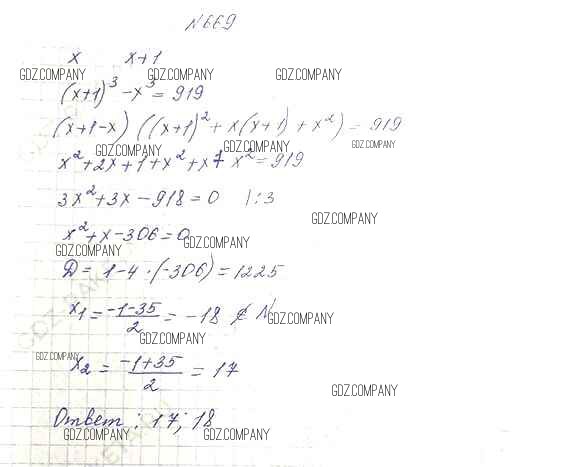 №669
x x+1
GDZ.COMPANY GDZ.COMPANY GDZ.COMPANY
(x+1)³ - x³ = 919
(x+1-x) ((x+1)² + x(x+1) + x²) = 919
GDZ.COMPANY GDZ.COMPANY GDZ.COMPANY
x² + 2x + 1 + x² + x + x² = 919
3x² + 3x - 918 = 0 |:3
GDZ.COMPANY
x² + x - 306 = 0
GDZ.COMPANY GDZ.COMPANY
Д = 1 - 4 · (-306) = 1225
x₁ = (-1-35)/2 = -18 ∉ N
GDZ.COMPANY
GDZ.COMPANY
GDZ.COMPANY
x₂ = (-1+35)/2 = 17
GDZ.COMPANY
Ответ: 17; 18
GDZ.COMPANY GDZ.COMPANY